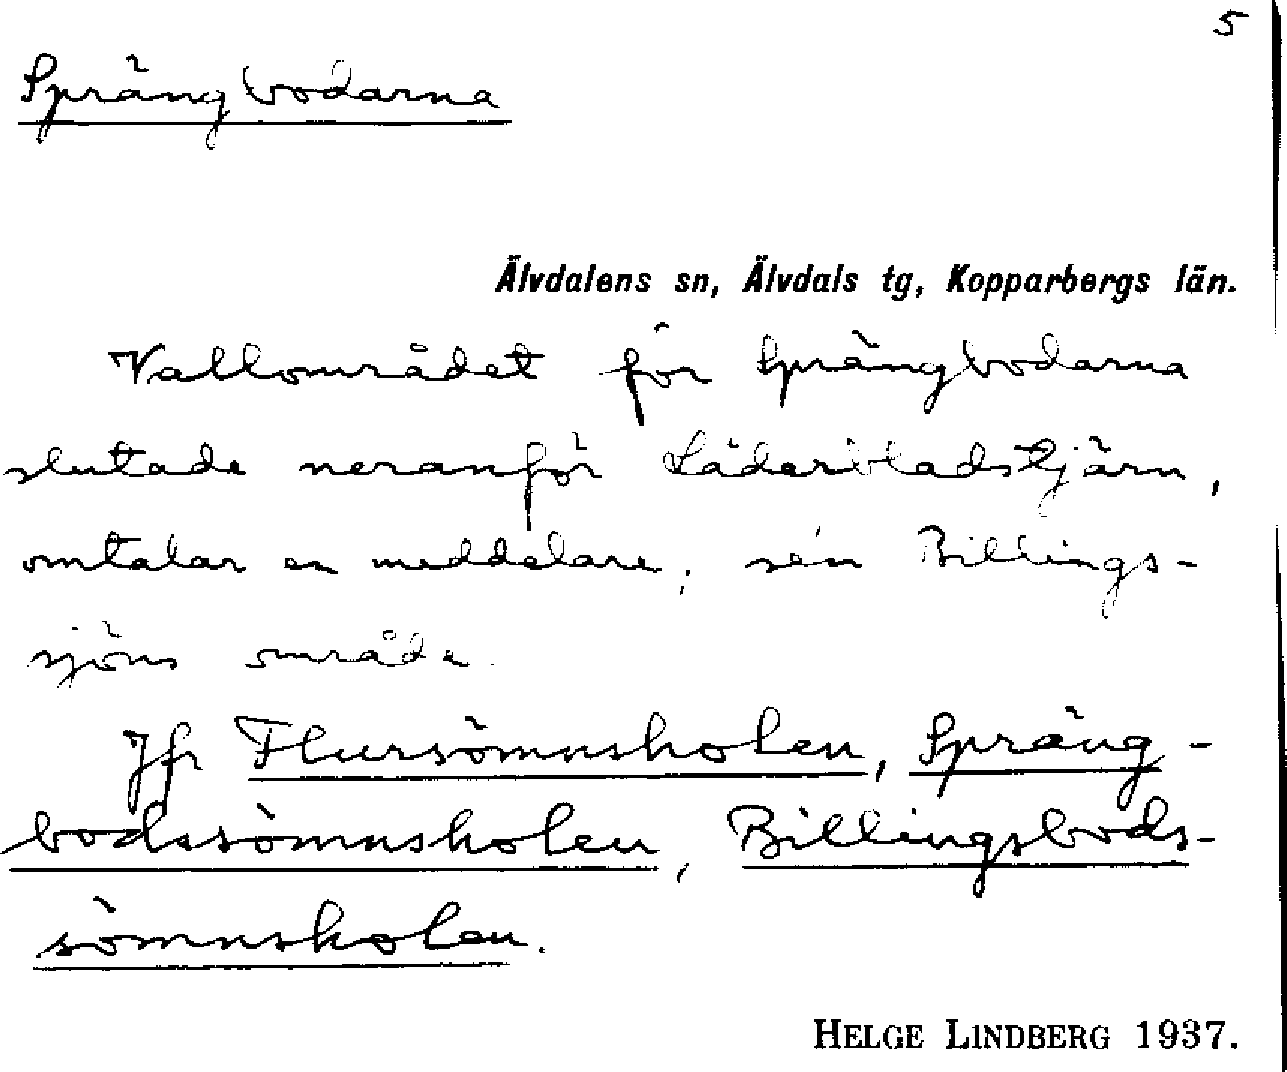 5
Sprängbodarna
Älvdalens sn, Älvdals tg, Kopparbergs län.
Vallområdet för Sprängbodarna
slutade neranför Läderbladstjärn,
omtalar en meddelare, sén Billings-
sjöns område.
Jfr Flursömnskolen, Spräng-
bodssömnskolen, Billingsbods-
sömnskolen.
HELGE LINDBERG 1937.